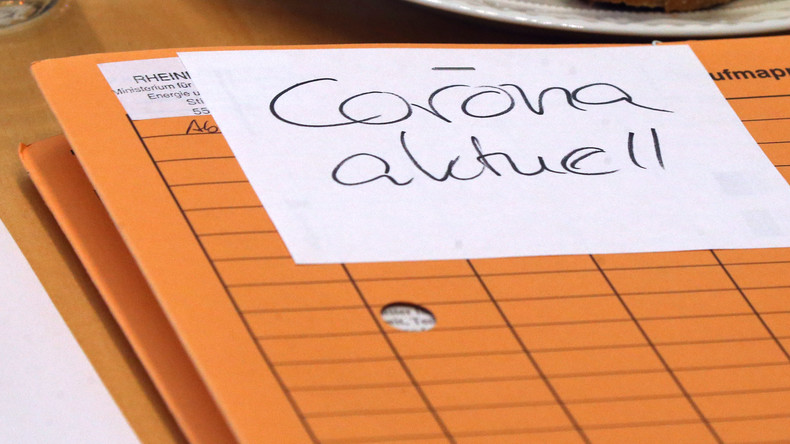 RHEINL
Ministerium für
Energie u
Sti
55
ufmapp
Corona
aktuell